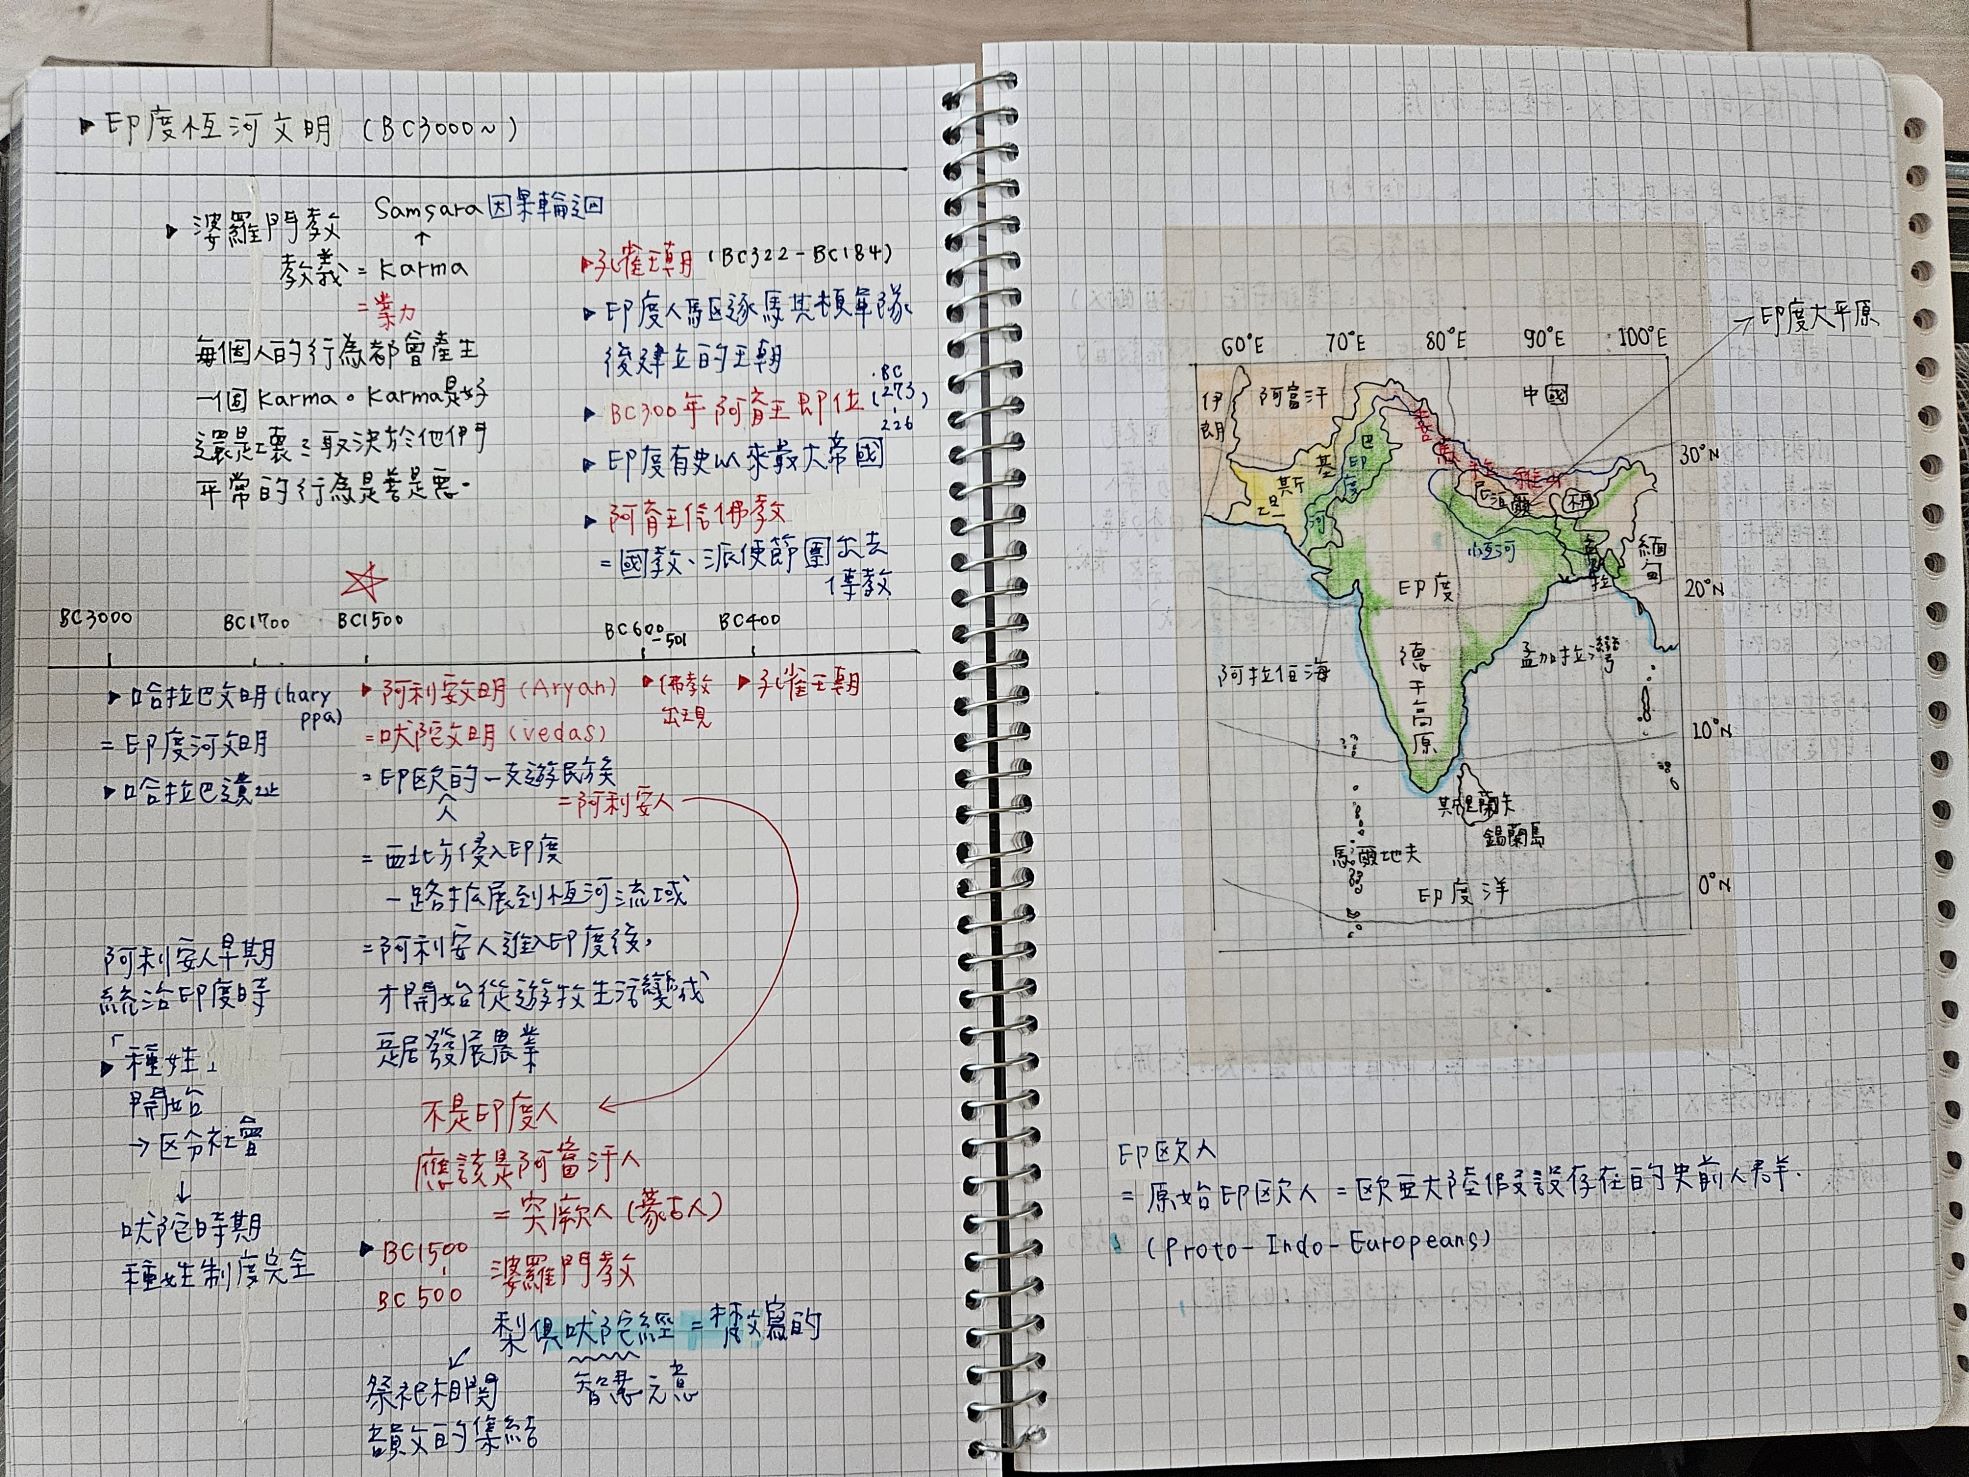 ▸印度恆河文明 (BC3000~)
▸婆羅門教
Samsara因果輪迴
↑
教義 = Karma
=業力
每個人的行為都會產生
一個Karma。Karma是好
還是壞:取決於他們
平常的行為是善是惡。
▸孔雀王朝 (BC322-BC184)
▸印度人馬区逐馬其頓軍隊
後建立的王朝
▸BC300年阿育王即位
(BC
273
226)
▸印度有史以來最大帝國
▸阿育王信佛教
=國教、派使節團出去
傳教
BC3000
BC1700
BC1500
BC600
-501
BC400
▸哈拉巴文明(hary
ppa)
=印度河文明
▸哈拉巴遺址
▸阿利安文明(Aryan)
=吠陀文明(vedas)
=印欧的一支遊民族
人
=阿利安人
=西北方侵入印度
一路拓展到恆河流域
=阿利安人進入印度後,
才開始從遊牧生活變成
定居發展農業
▸佛教
出現
▸孔雀王朝
阿利安人早期
統治印度時
▸「種姓」
開始
→区分社會
↓
吠陀時期
種姓制度完全
不是印度人
應該是阿富汗人
=突厥人(蒙古人)
▸BC1500
BC500
婆羅門教
梨俱吠陀經=梵文寫的
祭祀相関
智慧之意
韻文的集結
印度大平原
60°E 70°E 80°E 90°E 100°E
伊朗
阿富汗
中國
巴基斯坦
印度河
喜馬拉雅山
尼泊爾
不丹
恆河
孟加拉
緬甸
印度
德干高原
阿拉伯海
孟加拉灣
斯里蘭卡
錫蘭島
馬爾地夫
印度洋
30°N
20°N
10°N
0°N
印欧人
=原始印欧人=欧亞大陸假設存在的史前人群.
(Proto-Indo-Europeans)